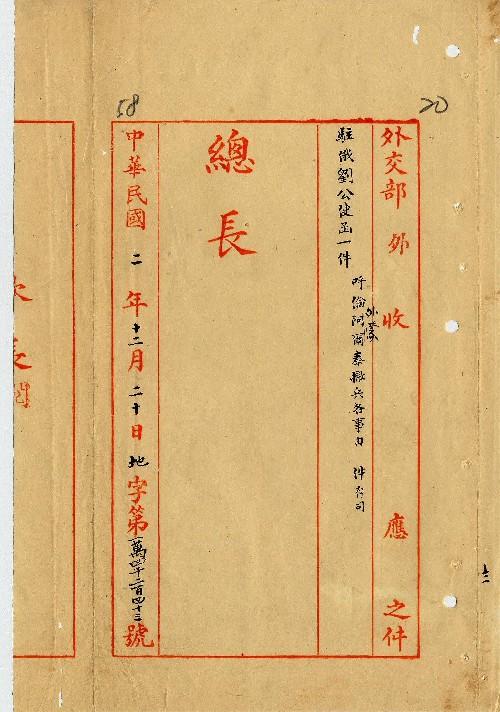 20
外交部外收應之件
駐俄劉公使函一件
外蒙
呼倫阿爾泰撤兵各事由 件存司
總長
58
中華民國二年十二月二十日地字第一萬四千二百四十三號
次長閱